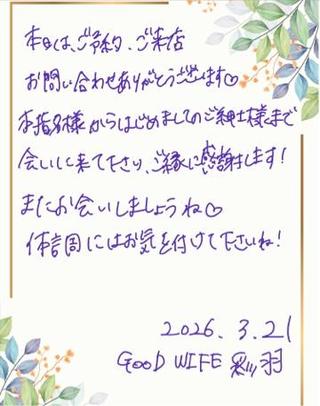 本日は、ご予約、ご来店
お問い合わせありがとうございます♡
本指名様からはじめましてのご紳士様まで
会いに来て下さり、ご縁に感謝します!
またお会いしましょうね♡
体調にはお気を付けて下さいね!
2026.3.21
GOOD WIFE 彩羽